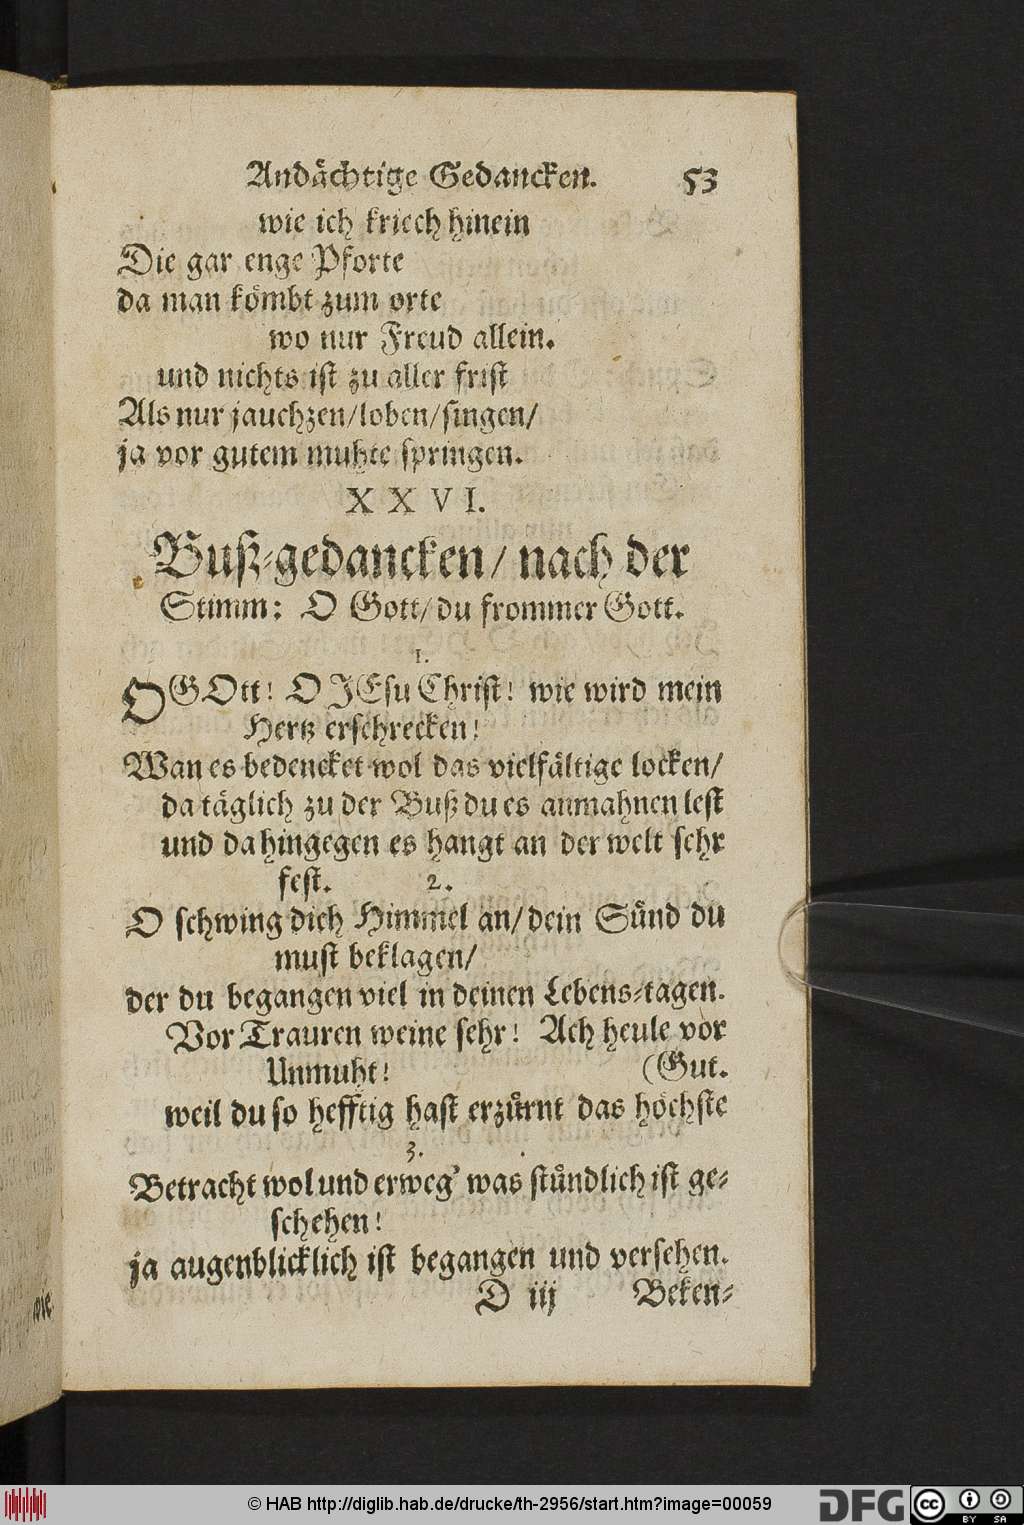 Andächtige Gedancken. 53
wie ich kriech hinein
Die gar enge Pforte
da man kömbt zum orte
wo nur Freud allein.
und nichts ist zu aller frist
Als nur jauchzen/loben/singen/
ja vor gutem muhte springen.
XXVI.
Buß-gedancken/ nach der
Stimm: O Gott/du frommer Gott.
1.
O GOtt! O JEsu Christ! wie wird mein
Hertz erschrecken!
Wan es bedencket wol das vielfältige locken/
da täglich zu der Buß du es anmahnen lest
und da hingegen es hangt an der welt sehr
fest. 2.
O schwing dich Himmel an/dein Sünd du
must beklagen/
der du begangen viel in deinen Lebens-tagen.
Vor Trauren weine sehr! Ach heule vor
Unmuht! (Gut.
weil du so hefftig hast erzürnt das höchste
3.
Betracht wol und erweg' was stündlich ist ge-
schehen!
ja augenblicklich ist begangen und versehen.
D iij Beken-
wie
© HAB http://diglib.hab.de/drucke/th-2956/start.htm?image=00059
DFG
cc BY SA